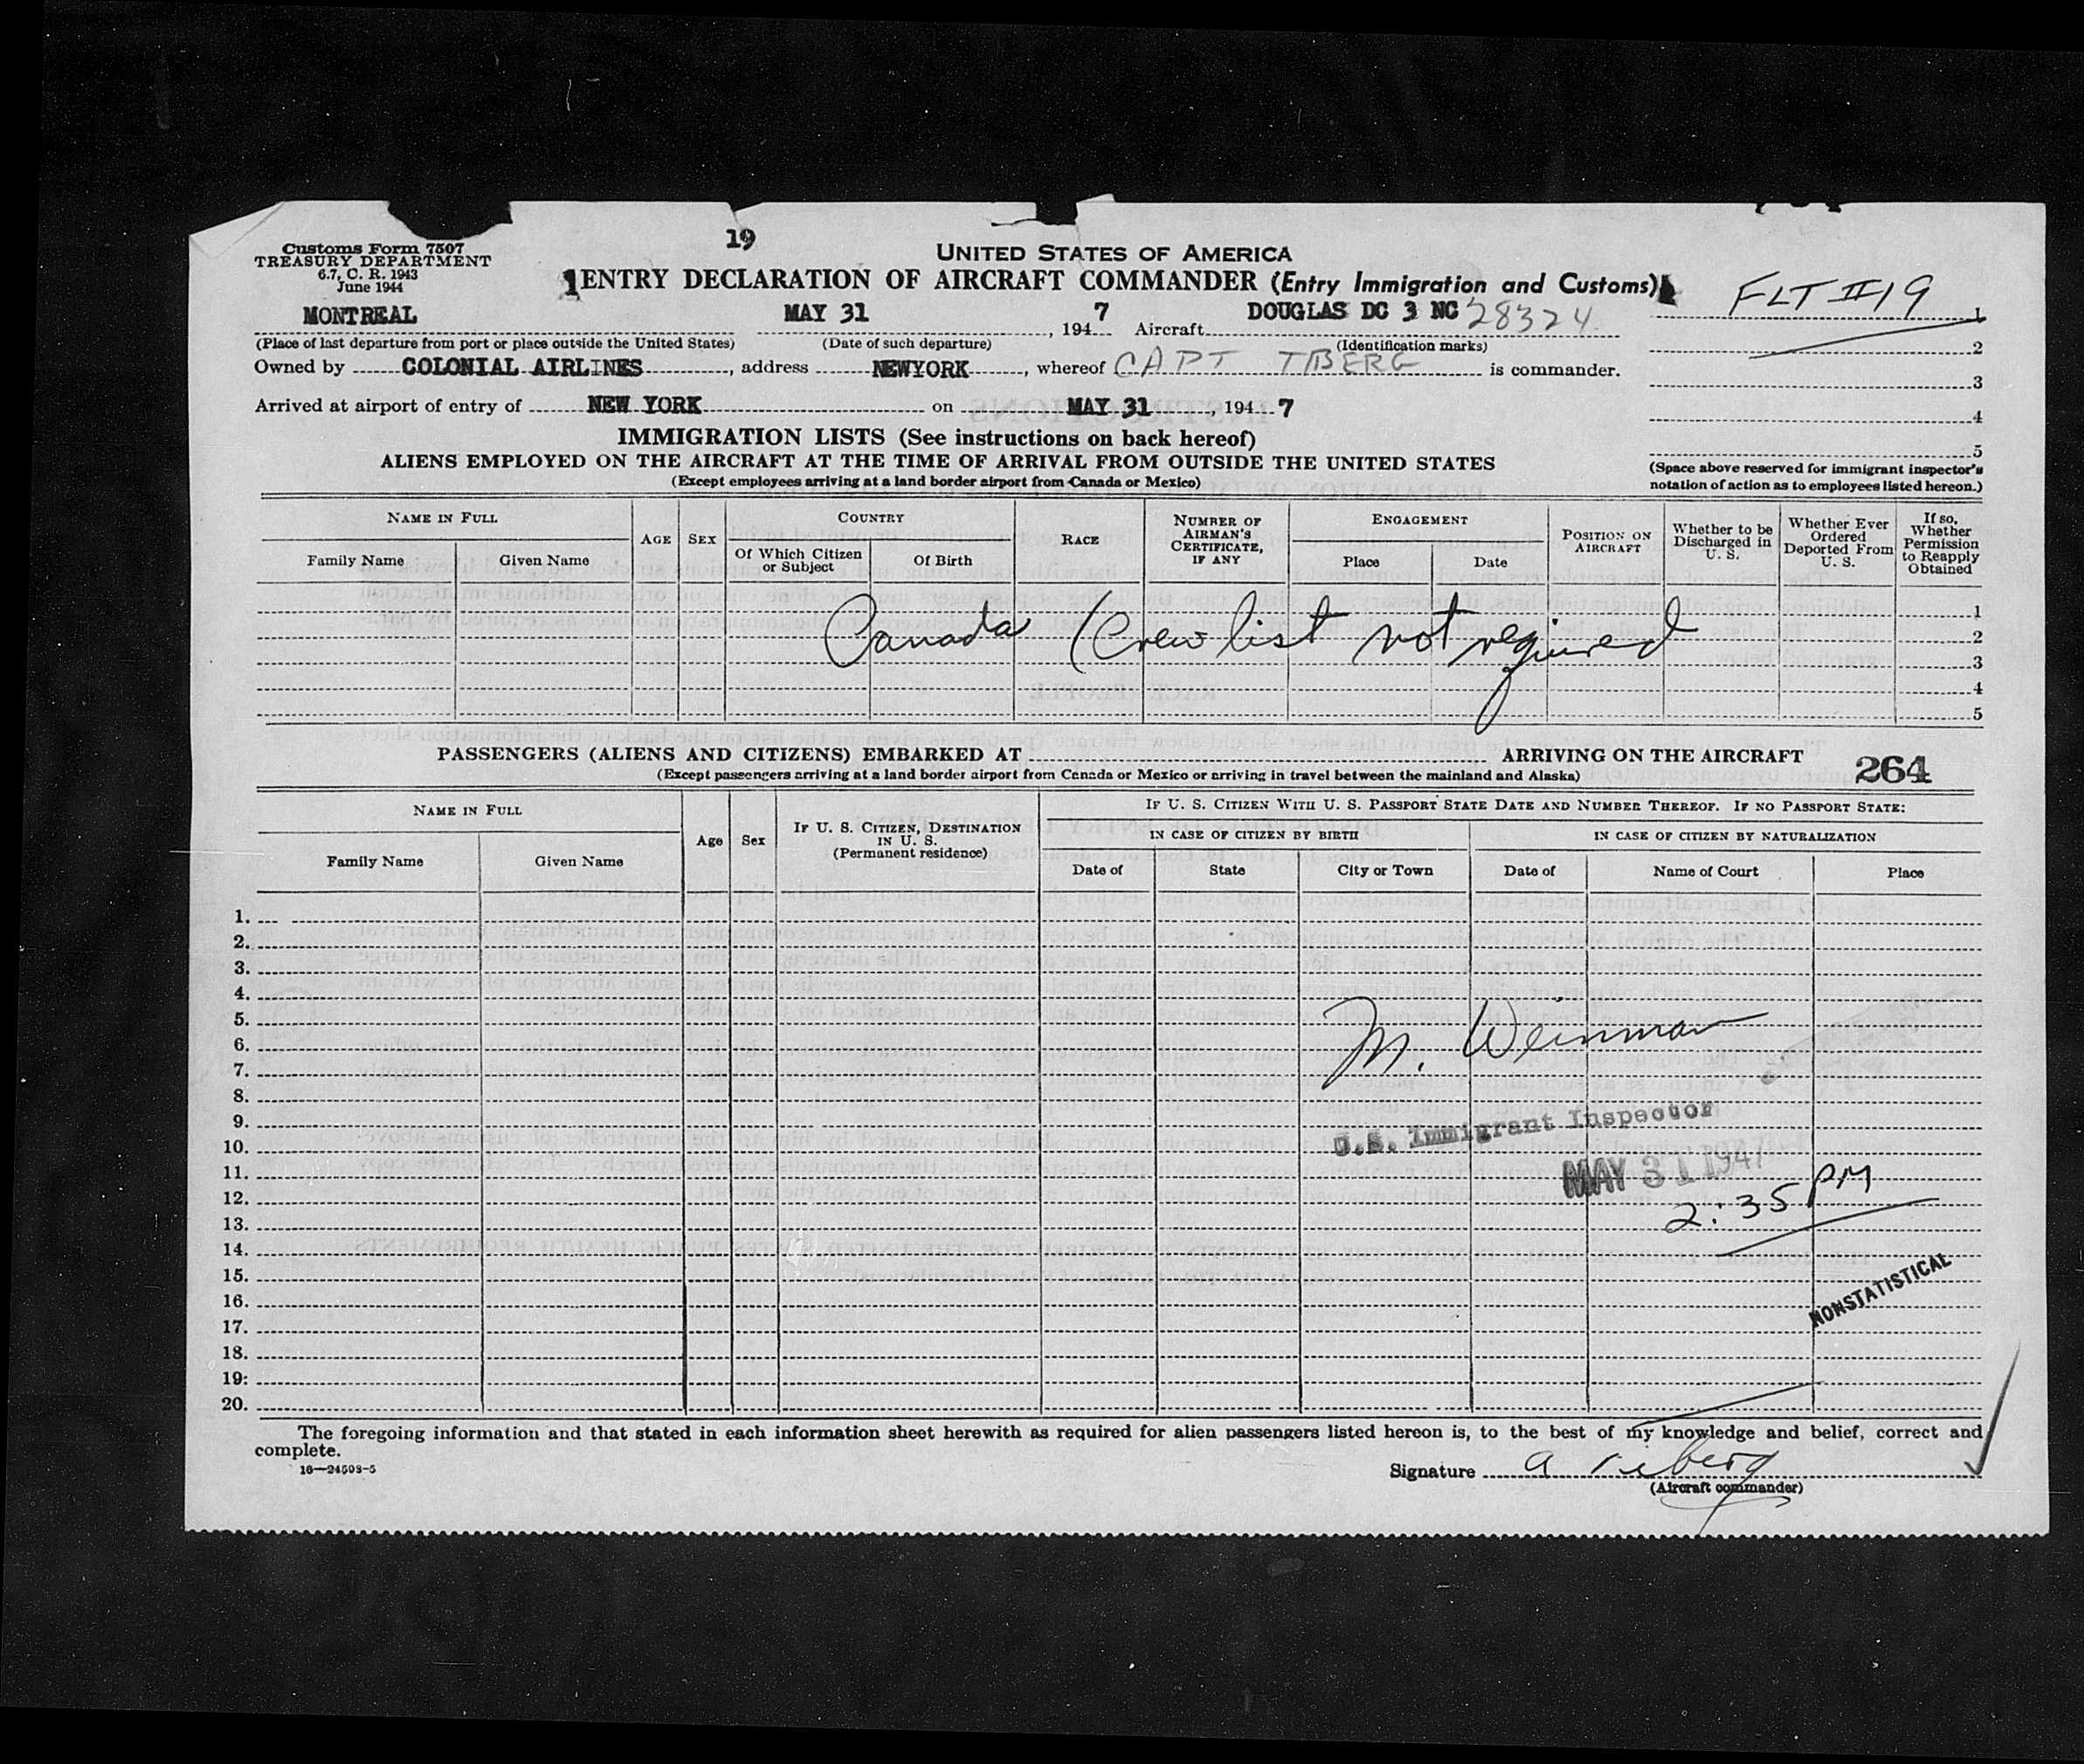 19
Customs Form 7507
TREASURY DEPARTMENT
6.7, C. R. 1943
June 1944
UNITED STATES OF AMERICA
1 ENTRY DECLARATION OF AIRCRAFT COMMANDER (Entry Immigration and Customs)
FLT #19
MONTREAL MAY 31, 1947 Aircraft DOUGLAS DC 3 NC 28324
(Place of last departure from port or place outside the United States) (Date of such departure) (Identification marks)
Owned by COLONIAL AIRLINES, address NEWYORK, whereof CAPT is commander.
Arrived at airport of entry of NEW YORK on MAY 31, 1947
1
2
3
4
5
(Space above reserved for immigrant inspector's
notation of action as to employees listed hereon.)
IMMIGRATION LISTS (See instructions on back hereof)
ALIENS EMPLOYED ON THE AIRCRAFT AT THE TIME OF ARRIVAL FROM OUTSIDE THE UNITED STATES
(Except employees arriving at a land border airport from Canada or Mexico)
NAME IN FULL
Family Name
Given Name
AGE
SEX
COUNTRY
Of Which Citizen
or Subject
Of Birth
RACE
NUMBER OF
AIRMAN'S
CERTIFICATE,
IF ANY
ENGAGEMENT
Place
Date
POSITION ON
AIRCRAFT
Whether to be
Discharged in
U. S.
Whether Ever
Ordered
Deported From
U. S.
If so,
Whether
Permission
to Reapply
Obtained
1
2
3
4
5
Canada (Crew list not required
PASSENGERS (ALIENS AND CITIZENS) EMBARKED AT ARRIVING ON THE AIRCRAFT 264
(Except passengers arriving at a land border airport from Canada or Mexico or arriving in travel between the mainland and Alaska)
NAME IN FULL
Family Name
Given Name
Age
Sex
IF U. S. CITIZEN, DESTINATION
IN U. S.
(Permanent residence)
IF U. S. CITIZEN WITH U. S. PASSPORT STATE DATE AND NUMBER THEREOF. IF NO PASSPORT STATE:
IN CASE OF CITIZEN BY BIRTH
IN CASE OF CITIZEN BY NATURALIZATION
Date of
State
City or Town
Date of
Name of Court
Place
1.
2.
3.
4.
5.
6.
7.
8.
9.
10.
11.
12.
13.
14.
15.
16.
17.
18.
19.
20.
M. Weinman
U.S. Immigrant Inspector
MAY 31 1947
2:35 PM
NONSTATISTICAL
The foregoing information and that stated in each information sheet herewith as required for alien passengers listed hereon is, to the best of my knowledge and belief, correct and
complete.
16—24593-5
Signature
(Aircraft commander)